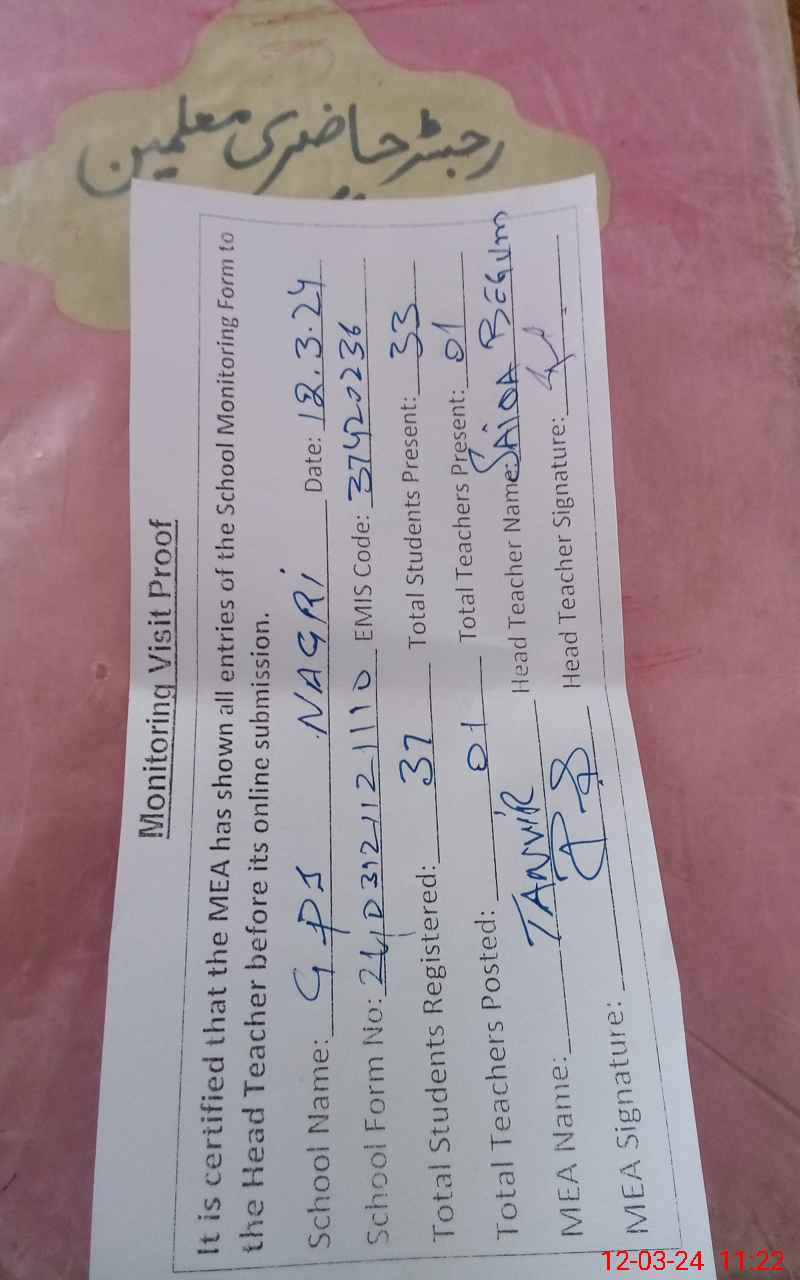 رجسٹر حاضری معلمین
Monitoring Visit Proof
It is certified that the MEA has shown all entries of the School Monitoring Form to
the Head Teacher before its online submission.
School Name: GPS NAGRI Date: 12.3.24
School Form No: EMIS Code: 37420236
Total Students Registered: 37 Total Students Present: 33
Total Teachers Posted: 01 Total Teachers Present: 01
MEA Name: TANVIR Head Teacher Name: SAIDA BEGUM
MEA Signature: Head Teacher Signature:
12-03-24 11:22